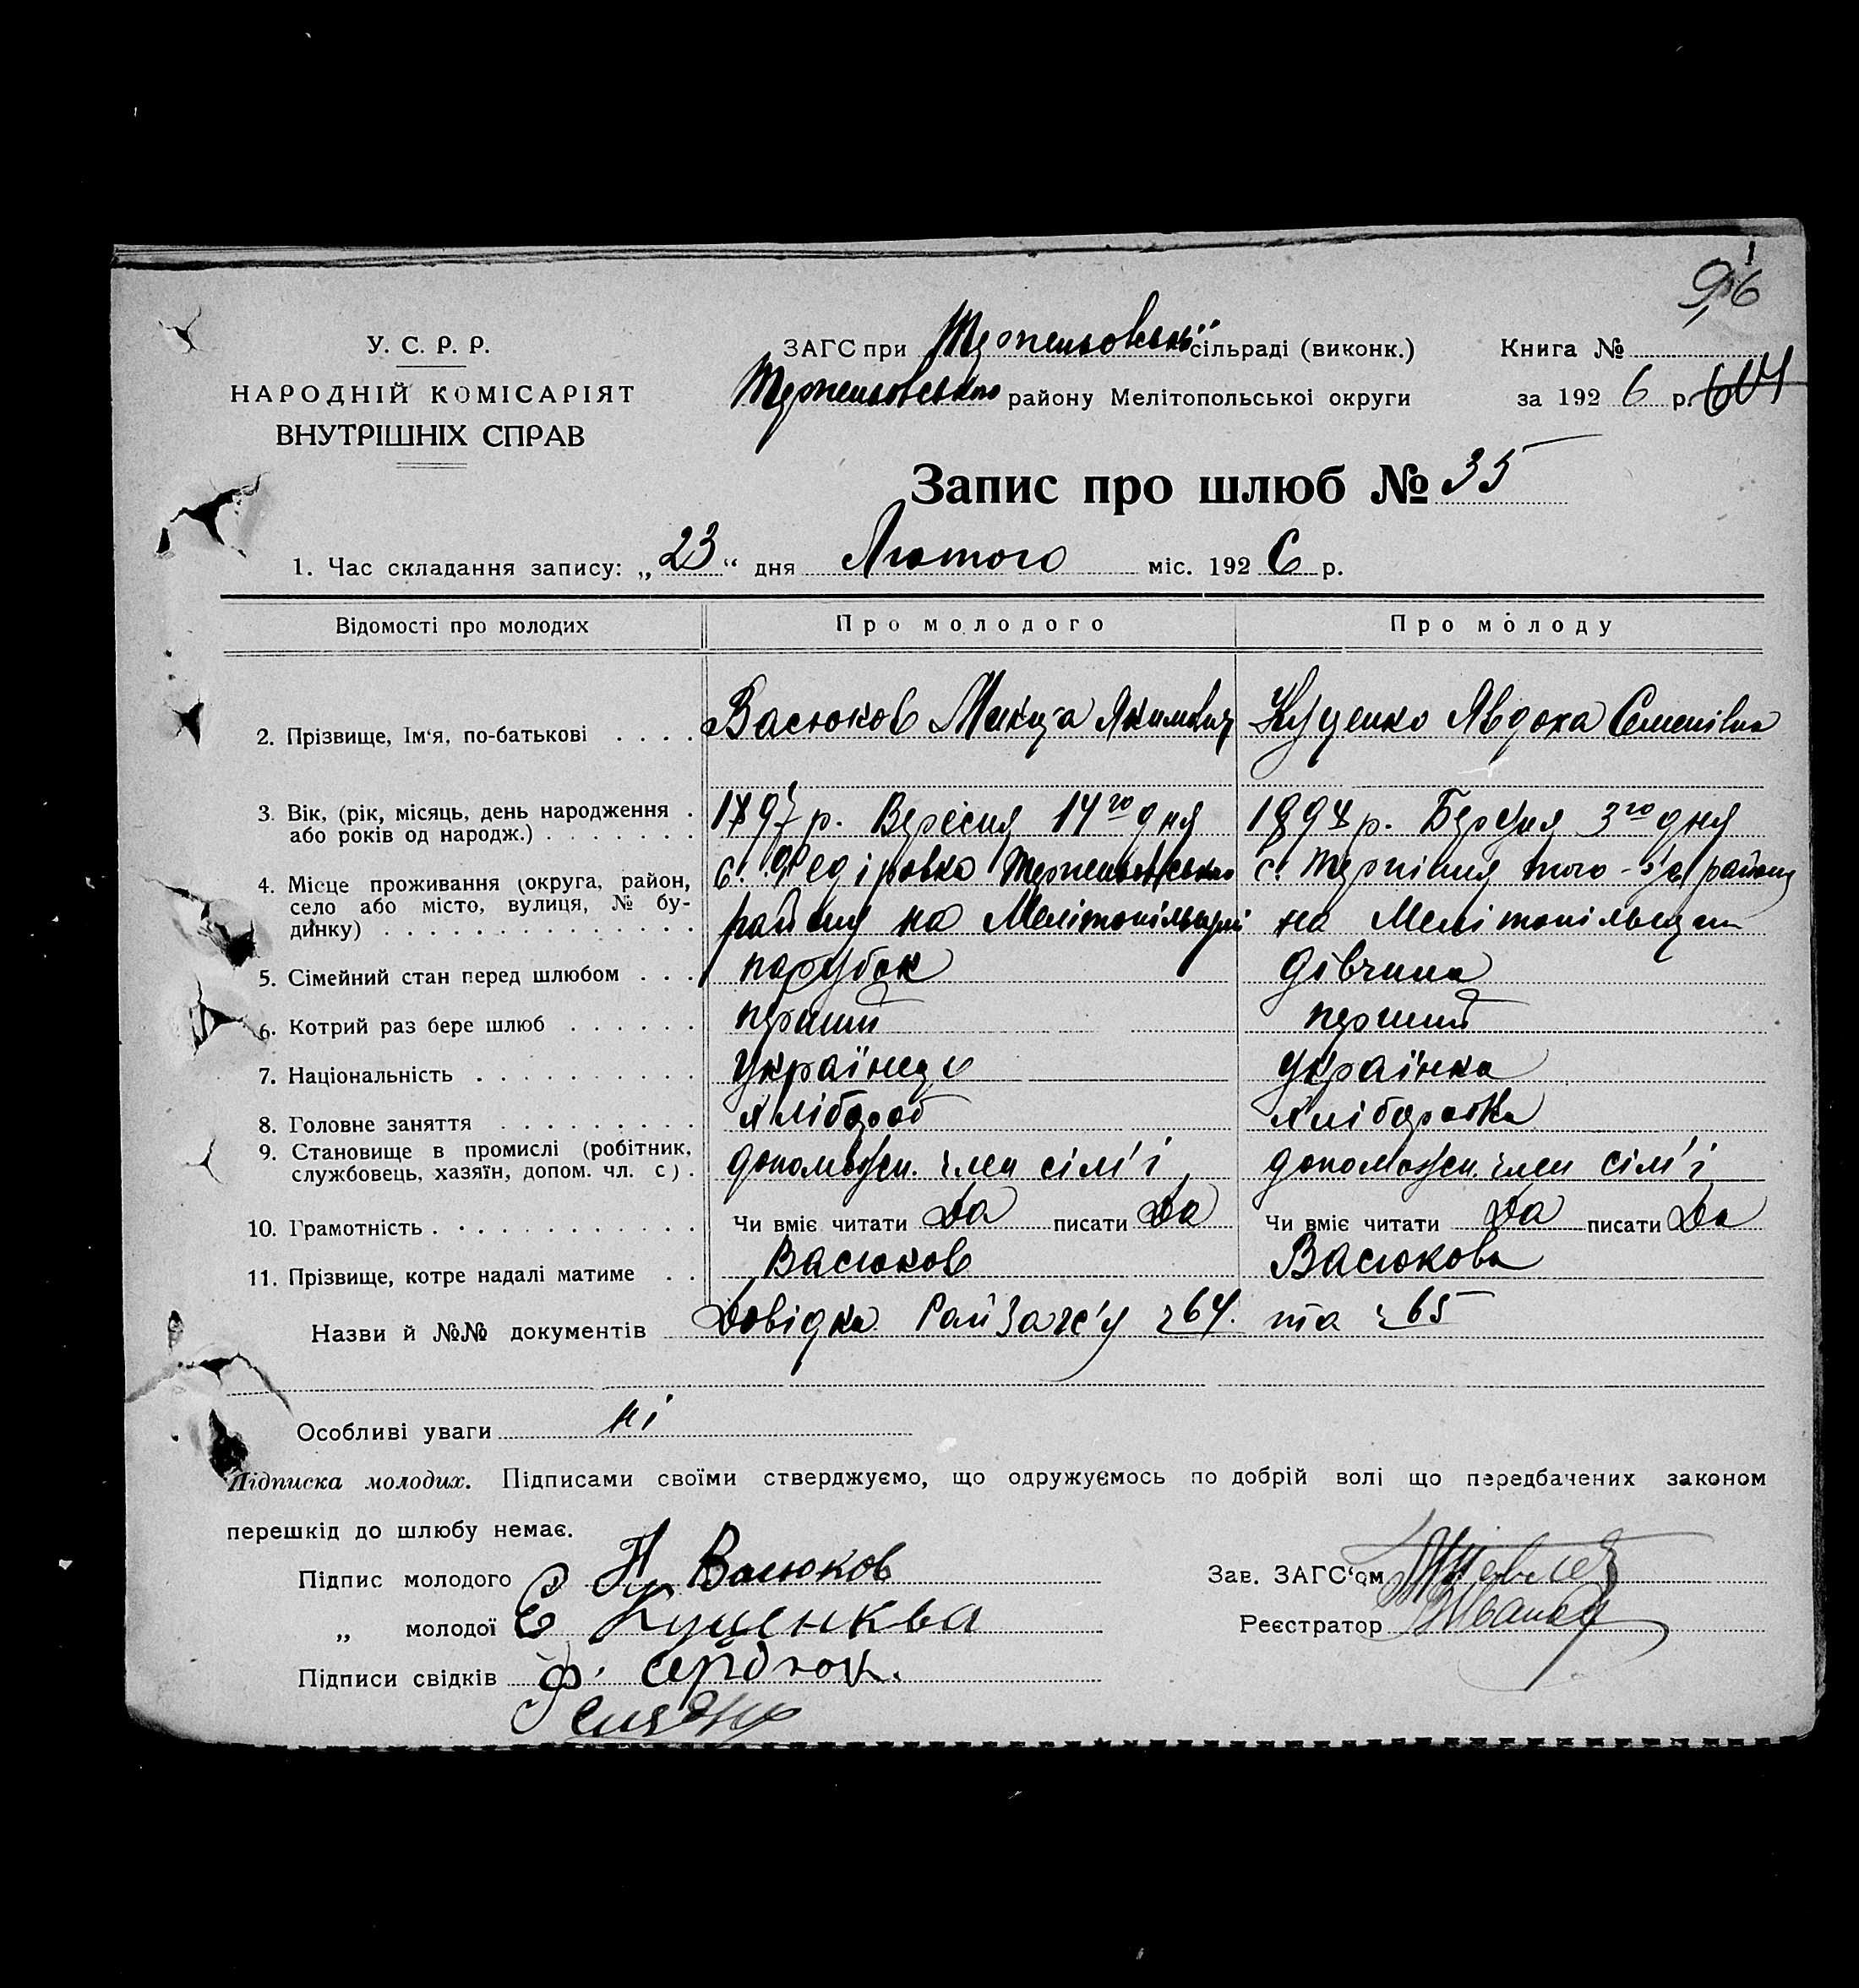 96
У. С. Р. Р.
НАРОДНІЙ КОМІСАРІЯТ
ВНУТРІШНІХ СПРАВ
ЗАГС при Терпеньовській сільраді (виконк.)
Терпеньовського району Мелітопольської округи
Книга №
за 1926 р. 604
Запис про шлюб № 35
1. Час складання запису: „23“ дня Лютого міс. 1926 р.
Відомості про молодих Про молодого Про молоду
2. Прізвище, Ім‘я, по-батькові Васюков Микита Якимович Куценко Явдоха Семенівна
3. Вік, (рік, місяць, день народження 1897 р. Вересня 14го дня р. Березня 3го дня
або років од народж.)
4. Місце проживання (округа, район, с. Федіровка Терпеньовського с. Терпіння того-ж району
село або місто, вулиця, № бу- району на Мелітопільщині на Мелітопільщині
динку)
5. Сімейний стан перед шлюбом парубок дівчина
6. Котрий раз бере шлюб перший перший
7. Національність українець українка
8. Головне заняття хлібороб хліборобка
9. Становище в промислі (робітник,
службовець, хазяїн, допом. чл. с). допоможн. член сім'ї допоможн. член сім'ї
10. Грамотність Чи вміє читати Да писати Да Чи вміє читати Да писати Да
11. Прізвище, котре надалі матиме Васюков Васюкова
Назви й №№ документів Довідка РайЗагс'у ч 64. та ч 65
Особливі уваги ні
Підписка молодих. Підписами своїми стверджуємо, що одружуємось по добрій волі що передбачених законом
перешкід до шлюбу немає.
Підпис молодого Н Васюков
Зав. ЗАГС‘ом
„ молодої Е Куценкова
Реєстратор
Підписи свідків Ф. Сердюк.